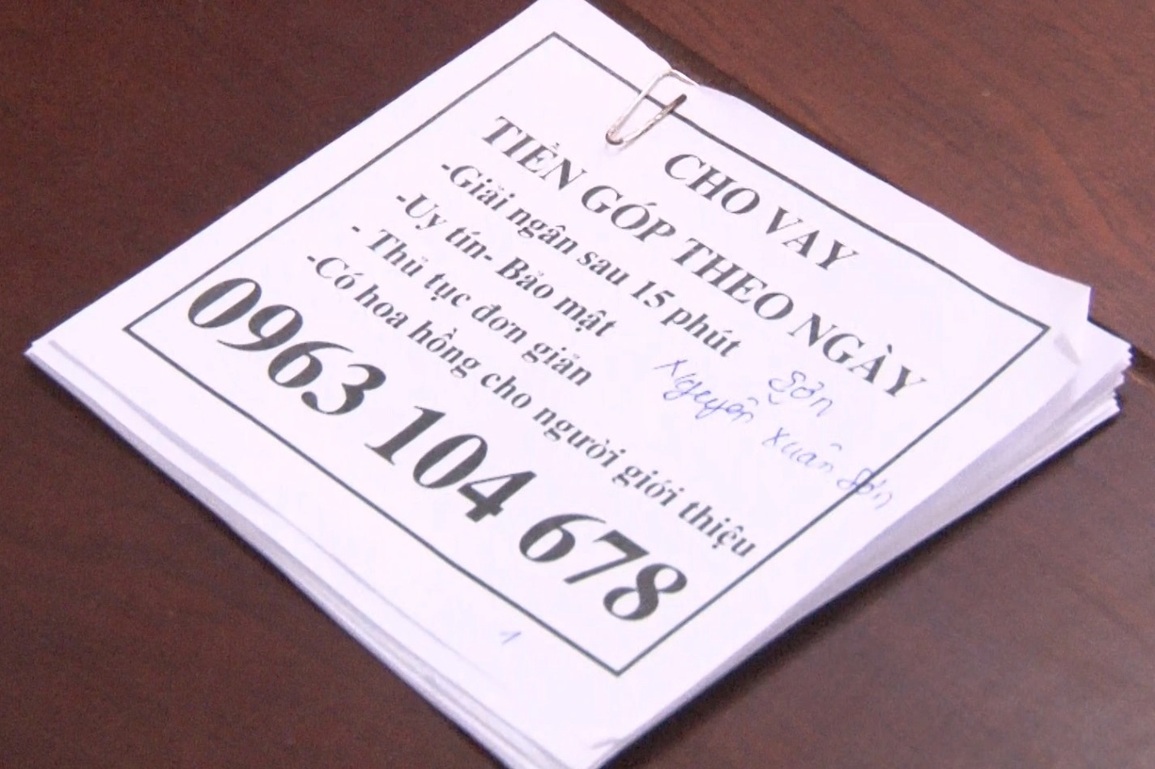 CHO VAY
TIỀN GÓP THEO NGÀY
-Giải ngân sau 15 phút
-Uy tín- Bảo mật
- Thủ tục đơn giản
-Có hoa hồng cho người giới thiệu
0963 104 678
Sơn
Nguyễn Xuân Sơn
1